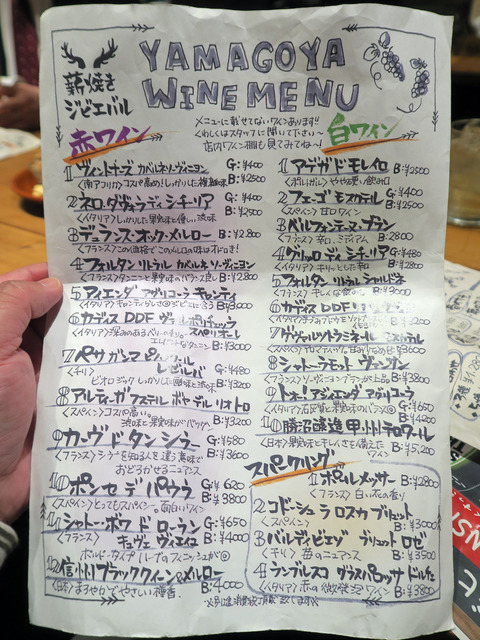 薪焼き
ジビエバル
YAMAGOYA
WINE MENU
メニューに載せてないワインあります!!
くわしくはスタッフに聞いて下さい〜
店内ワイン棚も見てみてね〜!
赤ワイン
1 ヴィントナーズ カベルネソーヴィニヨン G:¥400
<南アフリカ>コスパ高め!しっかりした B:¥2500
2 ネロ・ダヴォラ ディ シチーリア G:¥400
<イタリア>しっかりした果実味と優しい渋味 B:¥2500
3 デュランス・オック・メルロー B:¥2800
<フランス>この価格でこのメルロの味は
4 フォルタン リトラル カベルネ・ソーヴィニヨン
<フランス>タンニンと果実味のバランス良い B:¥2800
5 アイエンダ ウリコーネ キャンティ
<イタリア> B:¥3000
6 カディス DDF ヴァルポリチェッラ
スペリオーレ
<イタリア>深みのある
エレガントなタンニン B:¥3000
7 パサガンマ
レゼルバ G:¥480
<チリ>
ビオロジック しっかりした B:¥3200
8 アルティーガ フステル
<スペイン>コスパ高い。
渋味と果実味がバツグン B:¥3200
9 カーヴ ド タン シラー G:¥580
<フランス>シラーを知る人も違う B:¥3600
おどろかせるニュアンス
10 ポンセ デ パウラ G:¥620
<スペイン>とってもスパイシー。面白いワイン B:¥3800
11 シャトー・ボウ ド ローラン G:¥650
キュヴェ B:¥4000
<フランス>
ボルドータイプ
12 信州ブラッククイーン&メルロー B:¥4000
<日本>まろやかでやさしい
白ワイン
1 アデガ ド モレイロ G:¥400
<ポルトガル>やや甘い飲み口 B:¥2500
2 フェーゴ モスカテル G:¥400
<スペイン>甘口ワイン B:¥2500
3 ベルフォンテーヌ・ブラン
<フランス>辛口、ミディアム B:¥2800
4 グリッロ ディ シチーリア G:¥480
<イタリア>キリッとした辛口 B:¥2800
5 フォルタン リトラル シャルドネ
<フランス>キレイな飲み口 B:¥3000
6 カディス DDF
<イタリア> B:¥3200
7 ゲヴュルツトラミネール
<スペイン>アロマティック。 B:¥3600
8 シャトーモット ヴァンダン
<フランス>ソーヴィニヨンブランが上品 B:¥3800
9 アジェンダ アグリコーラ
<イタリア>石灰質と果実味のバランス◎ G:¥650
B:¥4200
10 勝沼醸造 甲州テロワール
<日本>果実味とキレイさを備えた
ワイン B:¥5,200
スパークリング
1 ポールメッサー B:¥2800
<フランス>白い花の香り
2 コドーシュ ラ ロスカ ブリュット
<スペイン> B:¥3000
3 バルディビエソ ブリュット ロゼ
<チリ>苺のニュアンス B:¥3500
4 ランブルスコ グラスパロッサ ドルチェ
<イタリア>赤の微発泡ワイン B:¥3800
※別途消費税頂戴致します※